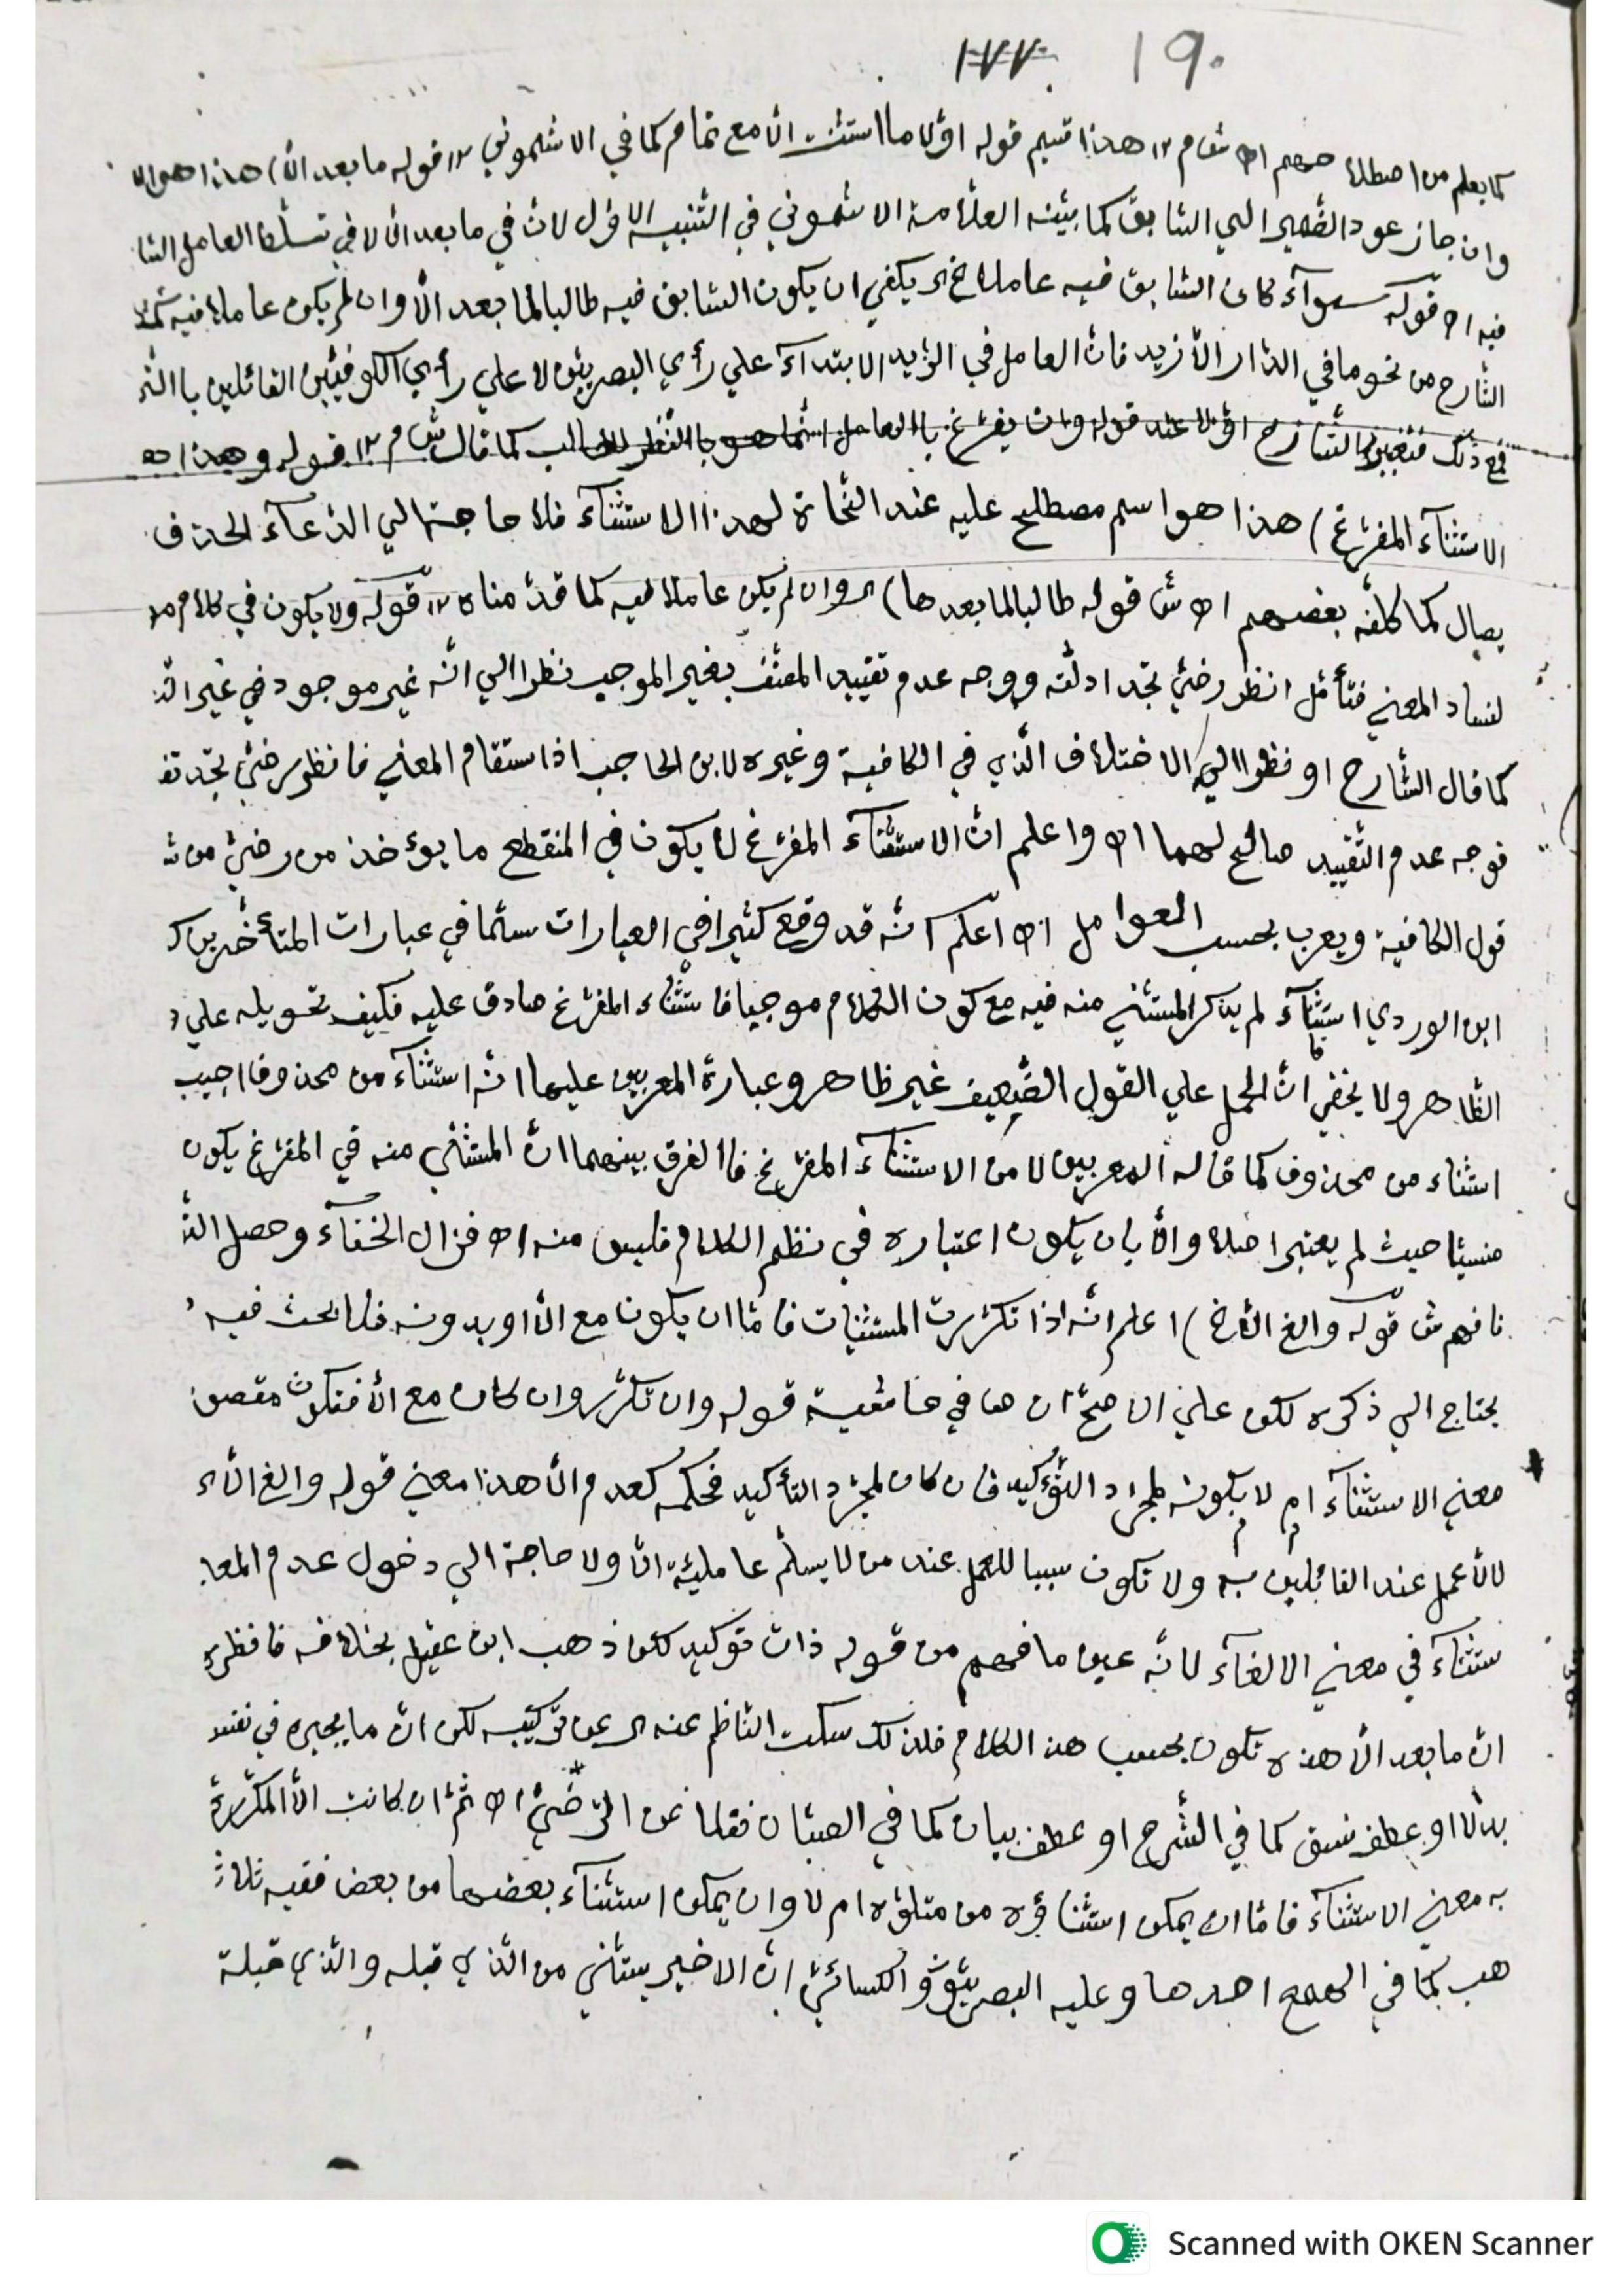 ١٧٧ ١٩٠
كما يعلم من اصطلاحهم اه ش م ١٢ هذا قسيم قوله اوّلا ما استثنت الّا مع تمام كما في الاشموني ١٢ قوله ما بعد الّا) هذا هو الا
وان جاز عود الضّمير الي السّابق كما بيّنه العلّامة الاشموني في التّنبيه الاوّل لانّ في ما بعد الّا لا في تسلّط العامل السّا
فيه اه قوله سوآء كان السّابق فيه عاملا الخ اى يكفي ان يكون السّابق فيه طالبا لما بعد الّا وان لم يكن عاملا فيه
الشّارح من نحو ما في الدّار الّا زيد فانّ العامل في الزيد الابتدآء علي رأي البصريّين لا علي رأي الكوفيّين القائلين باالتّر
فمع ذلك فتعبير الشّارح اوّلا عند قوله وان يفرّغ باالعامل انّما هو باالنّظر للغالب كما قال ش م ١٢ قوله وهذا هو
الاستثنآء المفرّغ) هذا هو اسم مصطلح عليه عند النّحاة لهذا الاستثنآء فلا حاجة الي الدّعآء الحذف
يصال كما كلّفه بعضهم اه ش قوله طالبا لما بعدها) اى وان لم يكن عاملا فيه كما قدّمناه ١٢ قوله ولا يكون في كلام مو
لفساد المعني فتأمّل انظر رضيّ تجد ادلّته ووجه عدم تقييد المصنّف بغير الموجب نظرا الي انّه غير موجود في غير النّ
كما قال الشّارح او نظرا الي الاختلاف الّذي في الكافية وغيره لابن الحاجب اذا ستقام المعني فانظر رضيّ تجد تف
فوجه عدم التّقييد صالح لهما اه واعلم انّ الاستثنآء المفرّغ لا يكون في المنقطع ما يؤخذ من رضيّ من ش
قول الكافية ويعرب بحسب العوامل اه اعلم انّه قد وقع كثيرا في العبارات سيّما في عبارات المتأخّرين ك
ابن الوردي استثنآء لم يذكر المستثني منه فيه مع كون الكلام موجبا فاستثناء المفرّغ صادق عليه فكيف تحويله علي
الظّاهر ولا يخفي انّ الحمل علي القول الضّعيف غير ظاهر وعبارة المعربين عليها انّه استثنآء من محذوف اجيب
استثناء من محذوف كما قاله المعربين لا من الاستثنآء المفرّغ فاالفرق بينهما انّ المستثني منه في المفرّغ يكون
منسيّا حيث لم يعتبر اصلا والّا بان يكون اعتباره في نظم الكلام فليس منه اه فزال الخفآء وحصل الشّ
فافهم ش قوله والغ الّا الخ) اعلم انّه اذا تكرّرت المستثنيات فامّا ان يكون مع الّا او بدونه فلا بحث فيه
يحتاج الي ذكره لكن علي الاصحّ ان ها في خامسية قوله وان تكرّر وان كان مع الّا فتكون مقصو
معني الاستثنآء ام لا يكون لمجرد التّوكيد فان كان لمجرّد التأكيد فحكمه كعدم الّا هذا معني قوله والغ الّا ء
لا تعمل عند القائلين به ولا تكون سببا للعمل عند من لا يسلّم عامليّة الّا ولا حاجة الي دخول عدم المعا
ستثنآء في معني الالغآء لانّه عين ما فهم من قوله ذات توكيد لكن ذهب ابن عقيل بخلافه فانظره
انّ ما بعد الّا هذه تكون بحسب هذ الكلام فلذلك سكت النّاظم عنه اى عن تركيبه لكن انّ ما يجيره في نفسه
بدلا او عطف نسق كما في الشّرح او عطف بيان كما في الصبّان نقلا عن الرّضيّ اه ثمّ ان كانت الّا المكرّرة
به معني الاستثنآء فامّا ان يمكن استثناؤه من متلوّه ام لا وان يمكن استثنآء بعضها من بعض ففيه ثلاث
هب كما في الهمع احدها وعليه البصريّون والكسائيّ انّ الاخير يستثني من الّذي قبله والّذي قبله
Scanned with OKEN Scanner